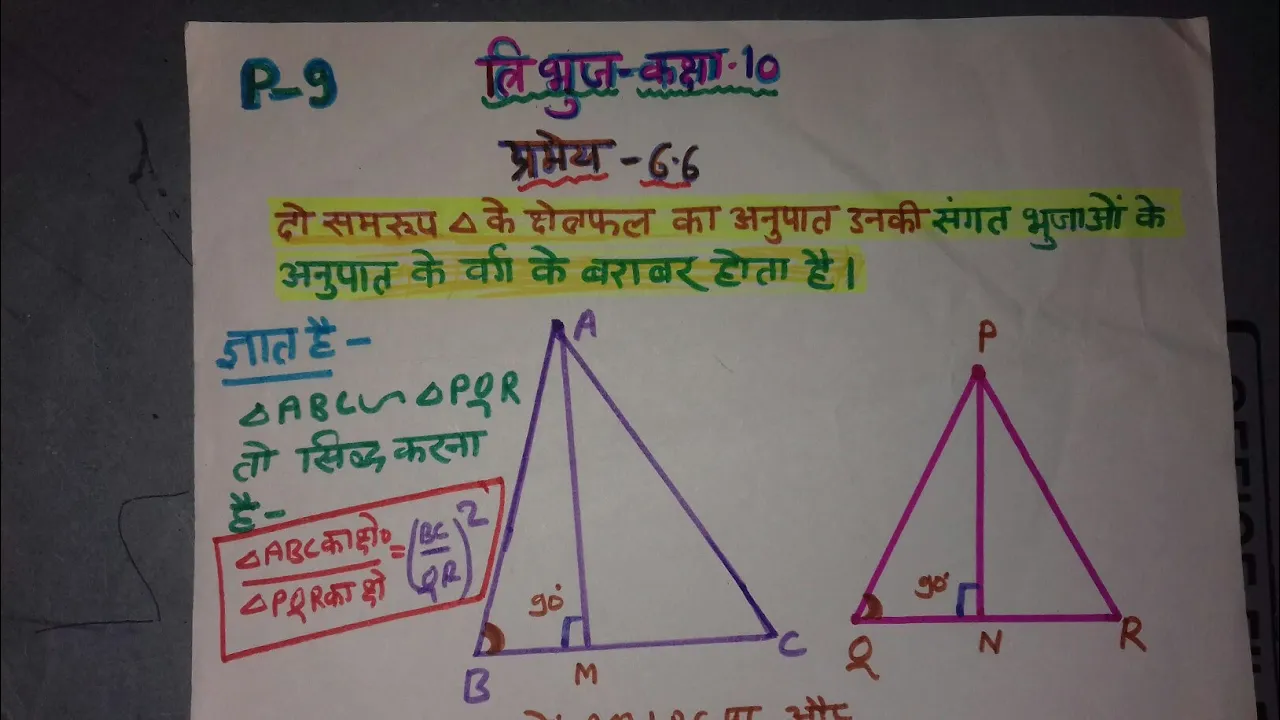 P-9
त्रिभुज-कक्षा.10
प्रमेय - 6.6
दो समरूप △ के क्षेत्रफल का अनुपात उनकी संगत भुजाओं के
अनुपात के वर्ग के बराबर होता है।
ज्ञात है -
△ABC ~ △PQR
तो सिद्ध करना
है-
△ABC का क्षे० / △PQR का क्षे = (BC/QR)²
A
B
M
C
90°
P
Q
N
R
90°